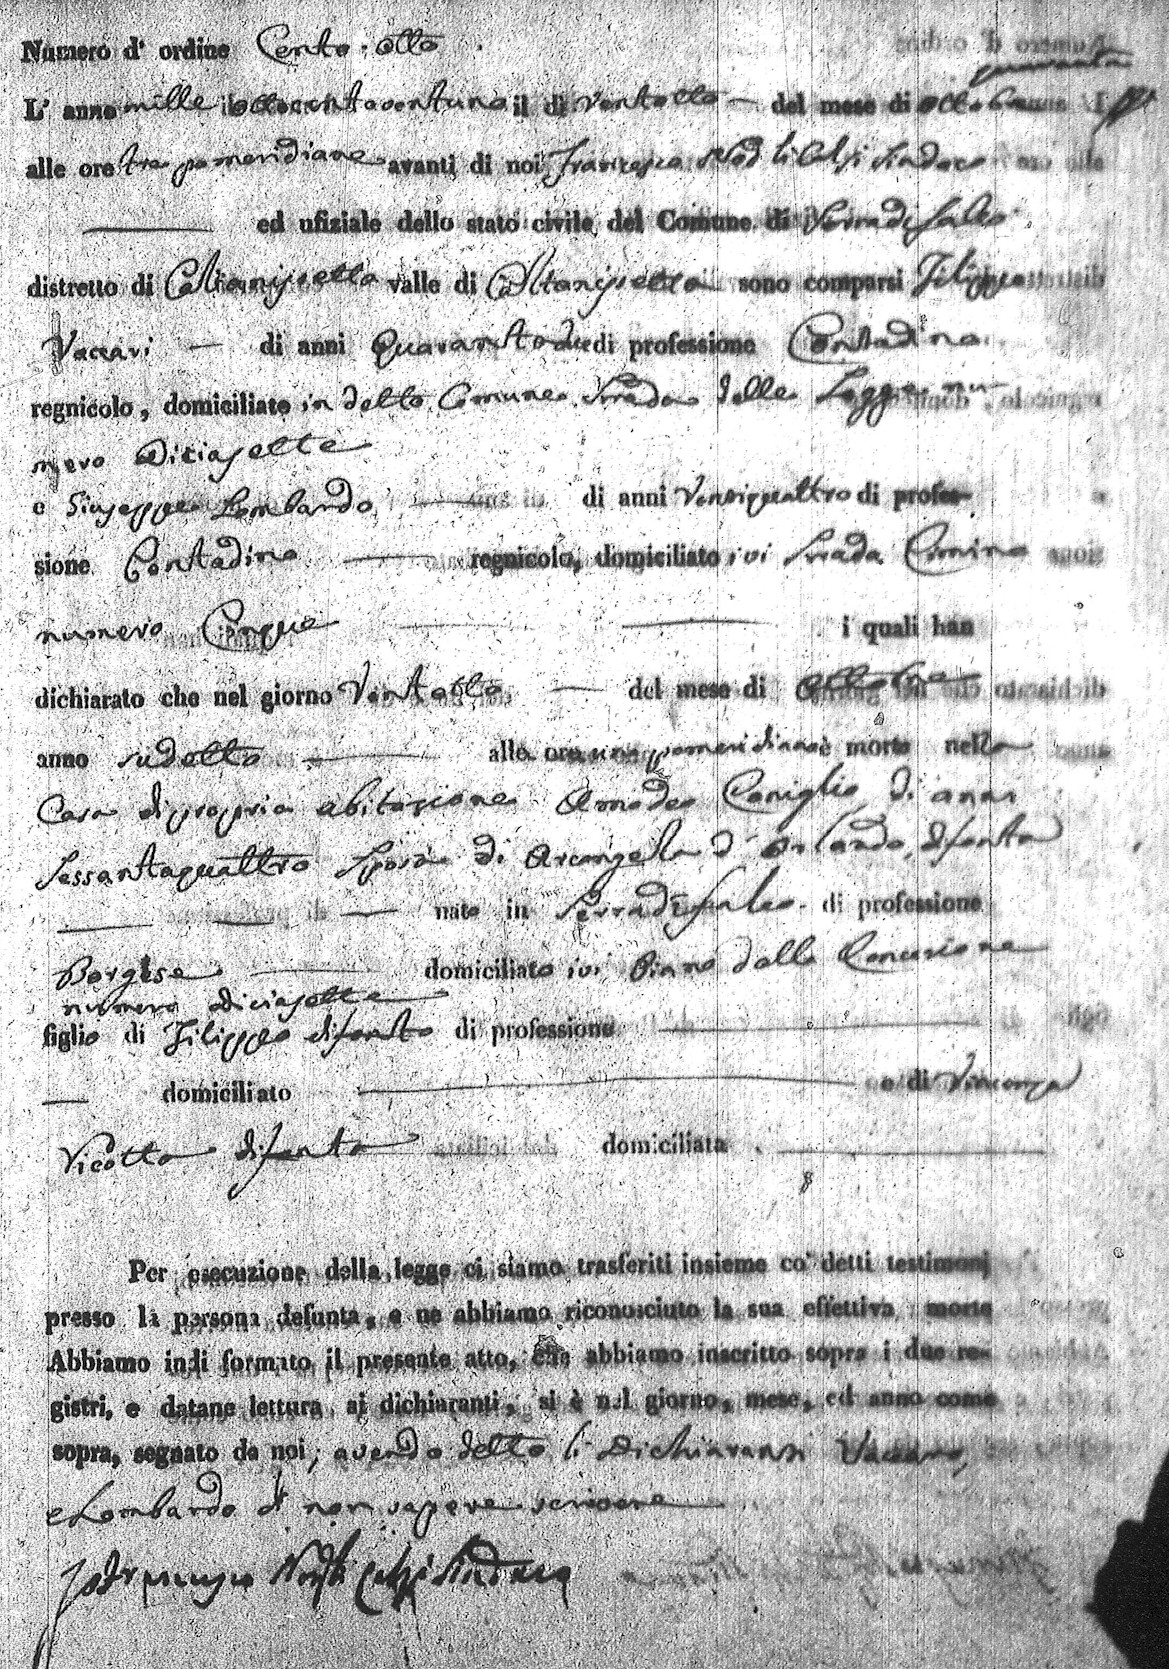 Numero d' ordine Cento otto
L' anno mille ottocentoventuno il di Ventotto del mese di ottobre
alle ore tre pomeridiane avanti di noi Francesco li Calzi Sindaco
ed ufiziale dello stato civile del Comune di Serradifalco
distretto di Caltanissetta valle di Caltanissetta sono comparsi Filippo
Vaccari di anni Quarantadue di professione Contadino
regnicolo, domiciliato in detto Comune Strada delle Logge nu-
mero Diciasette
e Giuseppe Lombardo di anni Ventiquattro di profes-
sione Contadino regnicolo, domiciliato ivi Strada Cimino
numero Cinque i quali han
dichiarato che nel giorno Ventotto del mese di ottobre
anno sudetto alle ore una pomeridiana è morto nella
Casa di propria abitazione Amodeo Coniglio di anni
Sessantaquattro Sposo di Arcangella d' Orlando, difonta
nato in Serradifalco di professione
Borgese domiciliato ivi Piano della Concezione
numero Diciasette
figlio di Filippo difonto di professione
domiciliato e di Vincenza
Vicotta difonta domiciliata
Per esecuzione della legge ci siamo trasferiti insieme co' detti testimonj
presso la persona defunta, e ne abbiamo riconosciuto la sua effettiva morte
Abbiamo indi formato il presente atto, che abbiamo inscritto sopra i due re-
gistri, e datane lettura ai dichiaranti, si è nel giorno, mese, ed anno come
sopra, segnato da noi, avendo detto li Dichiaranti Vaccaro,
e Lombardo di non sapere scrivere
Francesco li Calzi Sindaco